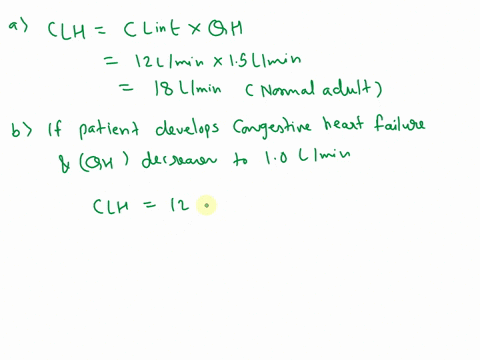 a) CLH = CLint × QH
= 12 L/min × 1.5 L/min
= 18 L/min (Normal adult)
b) If patient develops Congestive heart failure
& (QH) decreases to 1.0 L/min
CLH = 12